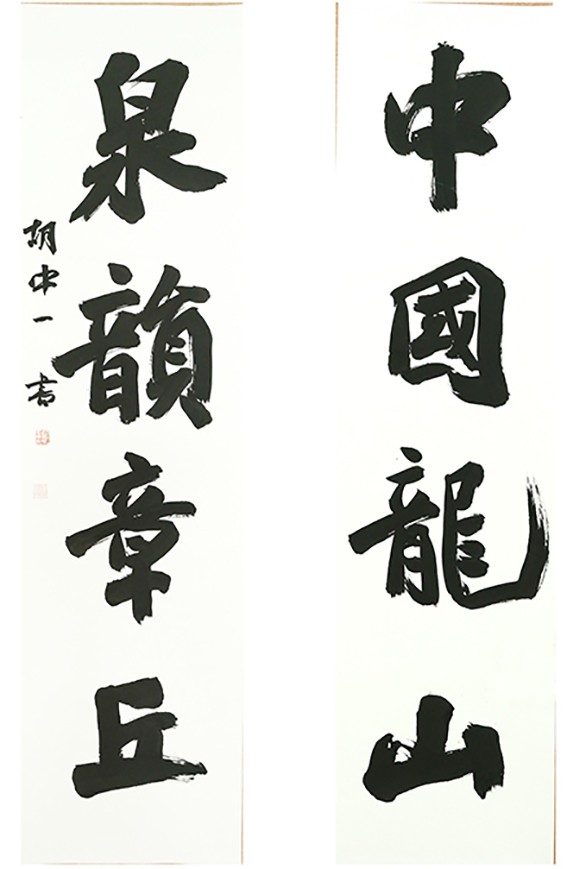 中國龍山
泉韻章丘
胡中一書